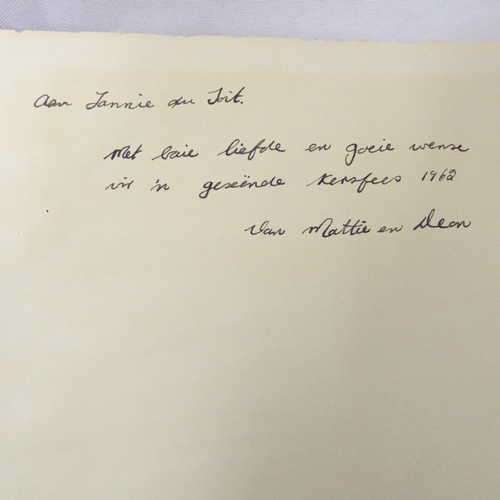 Aan Jannie du Toit.
Met baie liefde en goeie wense
vir 'n geseënde Kersfees 1962
Van Mattie en Deon